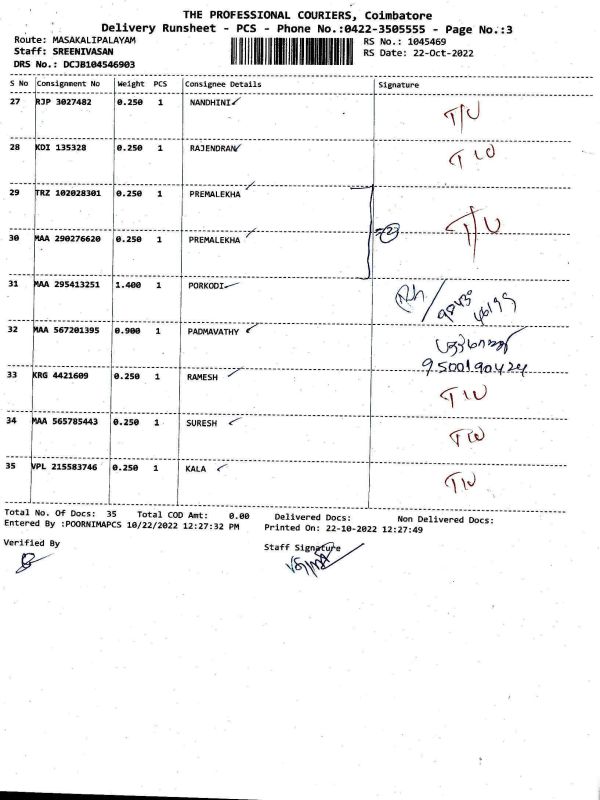 THE PROFESSIONAL COURIERS, Coimbatore
Delivery Runsheet - PCS - Phone No.:0422-3505555 - Page No.:3
Route: MASAKALIPALAYAM
RS No.: 1045469
Staff: SREENIVASAN
RS Date: 22-Oct-2022
DRS No.: DCJB104546903
S No Consignment No Weight PCS Consignee Details Signature
27 RJP 3027482 0.250 1 NANDHINI T/U
28 KDI 135328 0.250 1 RAJENDRAN
29 TRZ 102028301 0.250 1 PREMALEKHA
=2 T/U
30 MAA 290276620 0.250 1 PREMALEKHA
31 MAA 295413251 1.400 1 PORKODI
32 MAA 567201395 0.900 1 PADMAVATHY
9500190424
33 KRG 4421609 0.250 1 RAMESH
34 MAA 565785443 0.250 1 SURESH
35 VPL 215583746 0.250 1 KALA
Total No. Of Docs: 35 Total COD Amt: 0.00 Delivered Docs: Non Delivered Docs:
Entered By :POORNIMAPCS 10/22/2022 12:27:32 PM Printed On: 22-10-2022 12:27:49
Verified By
Staff Signature